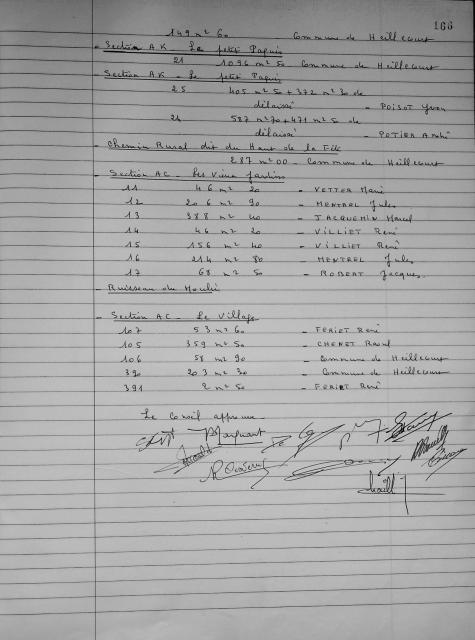 166
149 m² 60 Commune de Heillecourt
- Section AK - Le petit Paquis
21 1096 m² 50 Commune de Heillecourt
- Section AK - Le petit Paquis
25 405 m² 50 + 372 m² 30 de
délaissé - POISOT Yvon
24 587 m² 70 + 471 m² 5 de
délaissé - POTIER André
- Chemin Rural dit du Haut de la Fête
287 m² 00 - Commune de Heillecourt
- Section AC - Les Vieux Jardins
11 46 m² 20 - VETTER Marie
12 206 m² 90 - MENTREL Jules
13 388 m² 40 - JACQUEMIN Marcel
14 46 m² 20 - VILLIET René
15 156 m² 40 - VILLIET René
16 214 m² 80 - MENTREL Jules
17 68 m² 50 - ROBERT Jacques.
- Ruisseau du Moulin
- Section AC - Le Village
107 53 m² 60 - FERIET René
105 359 m² 50 - CHENET Raoul
106 58 m² 90 - Commune de Heillecourt
390 203 m² 30 - Commune de Heillecourt
391 2 m² 50 - FERIET René
Le Conseil approuve